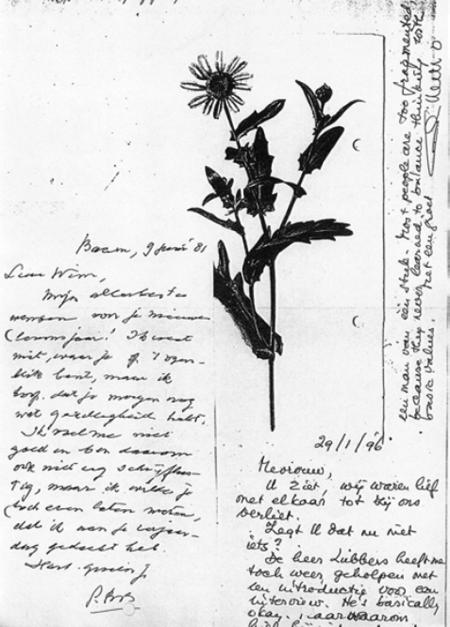 Baarn, 9 juni 81
Lieve Wim,
Mijn allerbeste
wensen voor je nieuwe
levensjaar! Ik weet
niet, waar je op 't ogen-
blik bent, maar ik
hoop, dat je morgen nog
wat gezelligheid hebt.
Ik voel me niet
goed en ben daarom
ook niet erg schrijflus-
tig, maar ik wilde je
toch even laten weten,
dat ik aan je verjaar-
dag gedacht heb.
Hart. groeten,
een man van één stuk. Most people are too fragmented
because they never learned to balance thinking with
basic values. Met een groet
29/1/96
Mevrouw,
U ziet, wij waren lief
met elkaar tot hij ons
verliet.
Zegt U dat nu niet
iets?
De heer Lubbers heeft me
toch weer geholpen met
een introductie voor een
interview. He's basically
okay. waarom